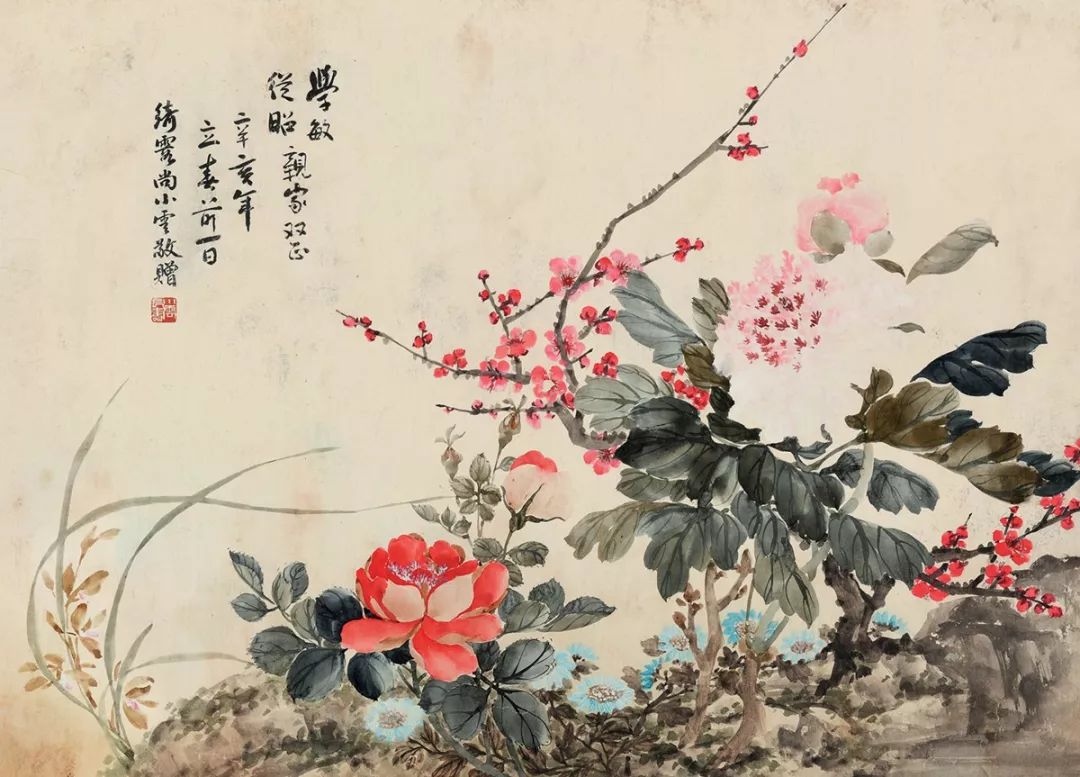 學敏
從昭親家双正
辛亥年
立春前一日
綺霞尚小雲敬贈